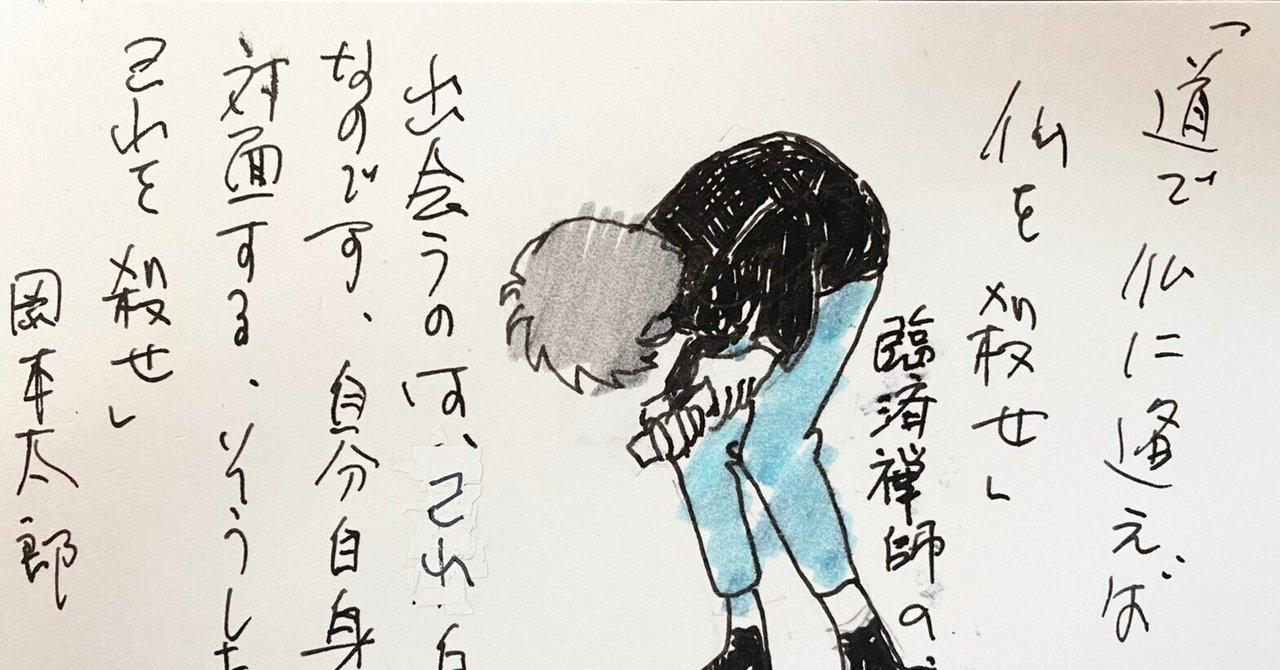 「道で仏に逢えば
仏を殺せ」
臨済禅師の
出会うのは、己れ
なのです、自分自身
対面する、そうした
己れを殺せ」
岡本太郎